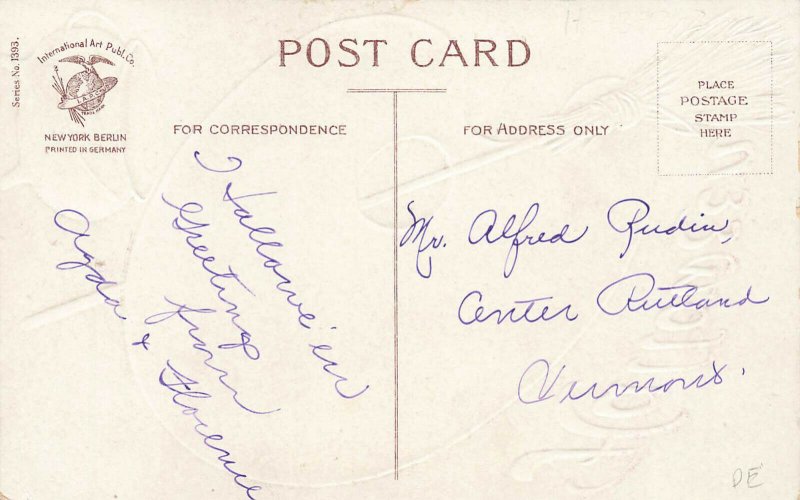 Series No. 1393.
International Art Publ. Co.
NEW YORK BERLIN
PRINTED IN GERMANY
POST CARD
FOR CORRESPONDENCE
FOR ADDRESS ONLY
PLACE
POSTAGE
STAMP
HERE
Hallowe'en
Greetings
from
Agda + Florence
Mr. Alfred Rudin,
Center Rutland
Vermont.
DE